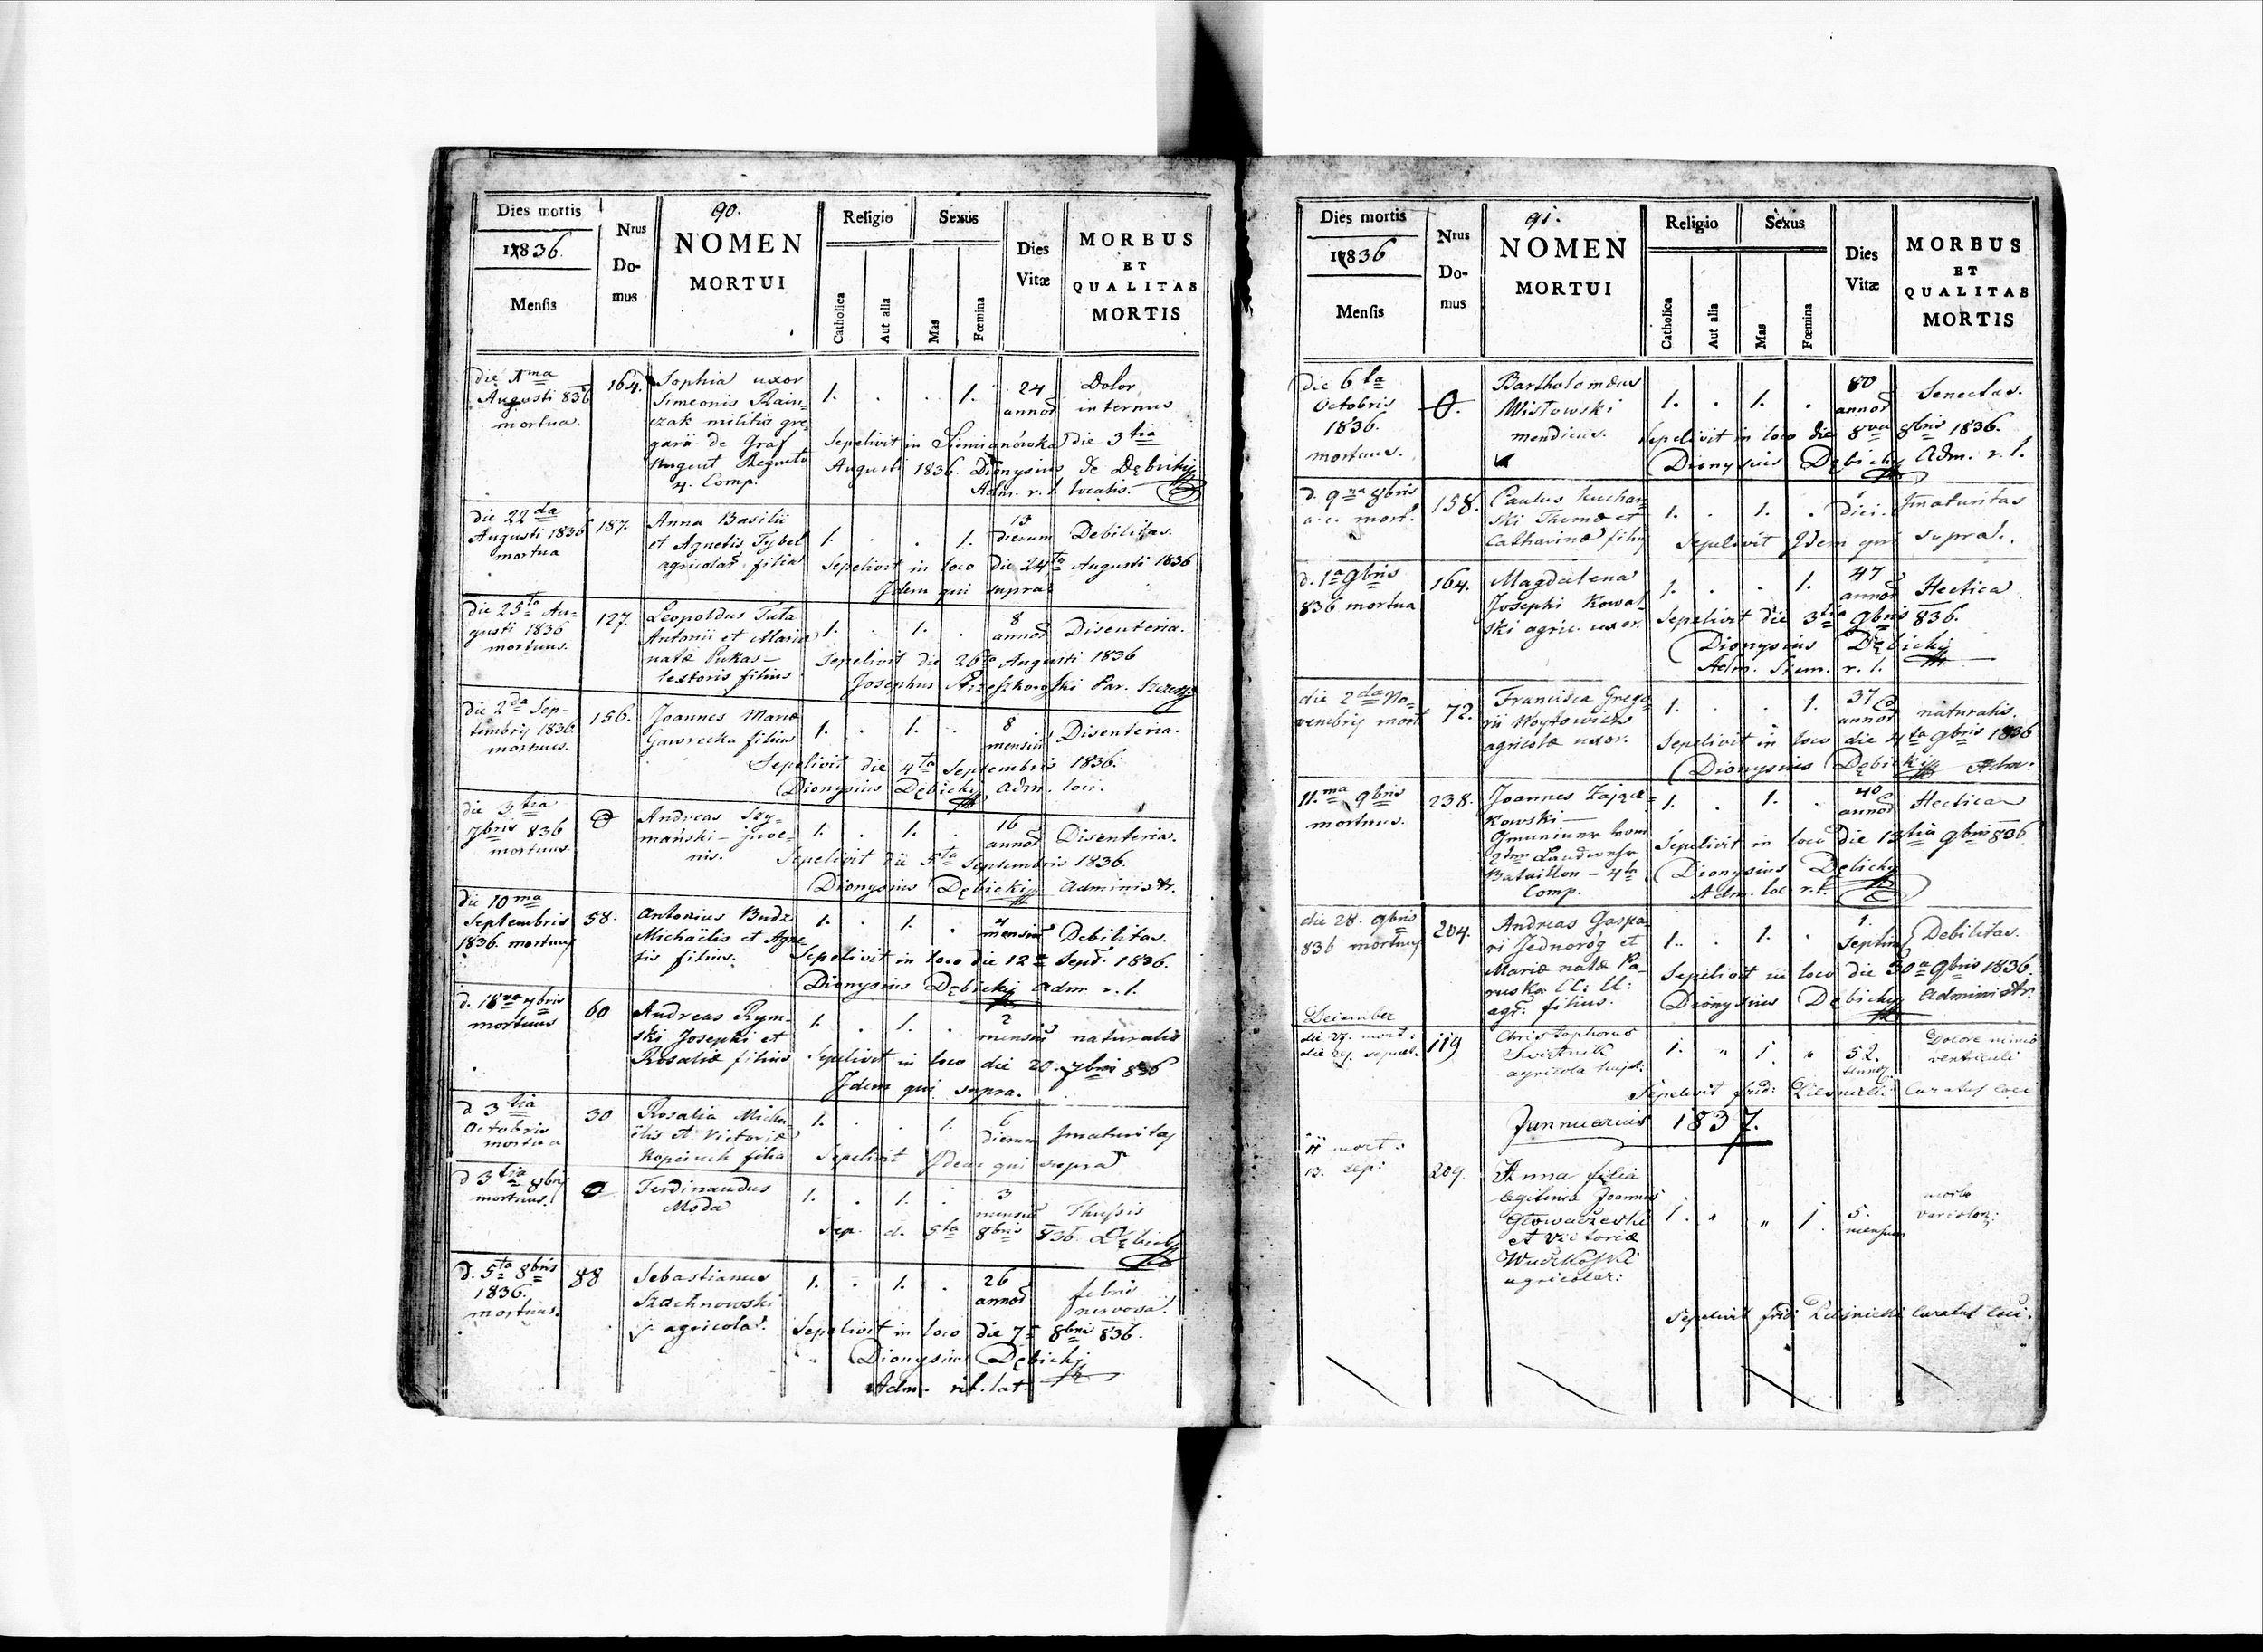 90.
Dies mortis
1836.
Mensis
Nrus Domus
NOMEN
MORTUI
Religio
Catholica
Aut alia
Sexus
Mas
Fœmina
Dies
Vitæ
MORBUS
ET
QUALITAS
MORTIS
die 1ma
Augusti 836
mortua.
164.
Sophia uxor
Simeonis
militis gre
garii de Graf
Nugent
4. Comp.
1. . . 1.
24
annor
Dolor
internus
Sepelivit in die 3tia
Augusti 1836. Dionysius de Dębicky
Adm. r. l. localis.
die 22da
Augusti 1836
mortua
187.
Anna Basilii
et Agnetis Tybel
agricolar. filia
1. . . 1.
13
dierum
Debilitas.
Sepelivit in loco die 24ta Augusti 1836
Idem qui supra
die 25ta Au-
gusti 1836
mortuus.
127.
Leopoldus Tuta
Antonii et Maria
natæ Pukas-
textoris filius
1. . 1. .
8
annor
Disenteria.
Sepelivit die 26ta Augusti 1836
Josephus Par.
die 2da Sep-
tembris 1836.
mortuus.
156.
Joannes Mariæ
Gawrecka filius
1. . 1. .
8
mensium
Disenteria.
Sepelivit die 4ta Septembris 1836.
Dionysius Dębicky adm. loci.
die 3tia
7bris 836
mortuus.
0
Andreas Szy-
mański - juve-
nis.
1. . 1. .
16
annor
Disenteria.
Sepelivit die 5ta Septembris 1836.
Dionysius Dębicky administr.
die 10ma
Septembris
1836. mortuus
58.
Antonius Budz
Michaëlis et Agne-
tis filius.
1. . 1. .
4
mensium
Debilitas.
Sepelivit in loco die 12a Sept. 1836.
Dionysius Dębicky adm. r. l.
d. 18va 7bris
mortuus
60
Andreas Rym-
ski Josephi et
Rosaliæ filius
1. . 1. .
2
mensium
naturalis
Sepelivit in loco die 20. 7bris 836
Idem qui supra.
d. 3tia
Octobris
mortua
30
Rosalia Micha-
ëlis et Victoriæ
Kopciuch filia
1. . . 1.
6
dierum
Imaturitas
Sepelivit Idem qui supra
d 3tia 8bris
mortuus.
0
Ferdinandus
Moda
1. . 1. .
3
mensium
Thussis
Sep. d. 5ta 8bris 836. Dębicky
d. 5ta 8bris
1836.
mortuus.
88
Sebastianus
Szachnowski
agricola.
1. . 1. .
26
annor
febris
nervosa.
Sepelivit in loco die 7a 8bris 836.
Dionysius Dębicky
Adm. rit. lat.
91.
Dies mortis
1836
Mensis
Nrus Domus
NOMEN
MORTUI
Religio
Catholica
Aut alia
Sexus
Mas
Fœmina
Dies
Vitæ
MORBUS
ET
QUALITAS
MORTIS
die 6ta
Octobris
1836.
mortuus.
0.
Bartholomæus
Wisłowski
mendicus.
1. . 1. .
80
annor
Senectus.
Sepelivit in loco die 8va 8bris 1836.
Dionysius Dębicky Adm. r. l.
d. 9na 8bris
a. c. mort.
158.
Paulus Kuchar
ski Thomæ et
Catharinæ filius
1. . 1. .
1
diei.
Imaturitas
Sepelivit Idem qui supra.
d. 1a 9bris
836 mortua
164.
Magdalena
Josephi Kowal-
ski agric. uxor.
1. . . 1.
47
annor
Hectica
Sepelivit die 3tia 9bris 836.
Dionysius Dębicky
Adm. r. l.
die 2da No-
vembris mort
72.
Francisca Grego-
rii Woytowicz
agricolæ uxor.
1. . . 1.
37
annor
naturalis.
Sepelivit in loco die 4ta 9bris 1836
Dionysius Dębicky Adm:
11.ma 9bris
mortuus.
238.
Joannes Zając-
kowski —
Gemeiner vom
2ten Landwehr
Bataillon - 4te
Comp.
1. . 1. .
40
annor
Hectica
Sepelivit in loco die 13tia 9bris 836
Dionysius Dębicky
Adm. loc r. l.
die 28. 9bris
836 mortuus
204.
Andreas Gaspa-
ri Jednorog et
Mariæ natæ Pa-
ruska
agr. filius.
1. . 1. .
1.
Septim
Debilitas.
Sepelivit in loco die 30a 9bris 1836.
Dionysius Dębicky administr.
December
die 27. mort:
die 29. sepult.
119
Christophorus
Swietnik
agricola hujat:
1. " 1. "
52.
annor.
Dolore nimio
ventriculi
Sepelivit frid: curatus loci
Jannuarius 1837.
11 mort:
13. sep:
209.
Anna filia
legitima Joannis
et Victoriæ
agricolar:
1. " " 1.
5.
mensium
morbo
variolar:
Sepelivit frid: curatus loci.